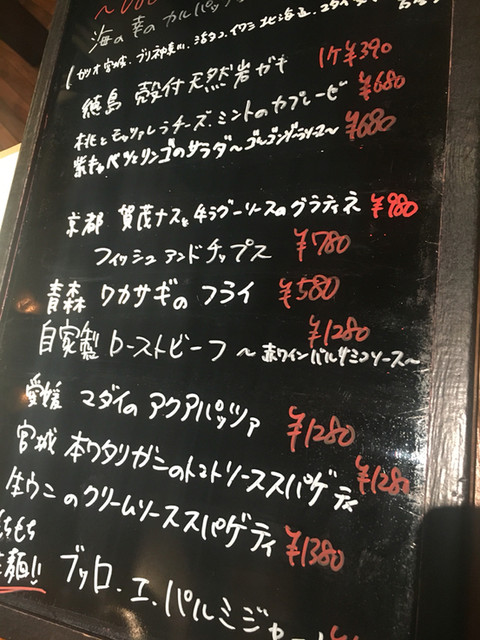 海の幸のカルパッ
徳島 殻付天然岩ガキ 1ケ¥390
桃とモッツァレラチーズ、ミントのカプレーゼ ¥680
紫キャベツとリンゴのサラダ〜ゴルゴンゾーラソース〜 ¥680
京都 賀茂ナスと牛ラグーソースのグラティネ ¥980
フィッシュアンドチップス ¥780
青森 ワカサギのフライ ¥580
自家製 ローストビーフ 〜赤ワインバルサミコソース〜 ¥1280
愛媛 マダイのアクアパッツァ ¥1280
宮城 本ワタリガニのトマトソーススパゲティ ¥1280
生ウニのクリームソーススパゲティ ¥1380
もちもち
麺!! ブッロ.エ.パルミジャ